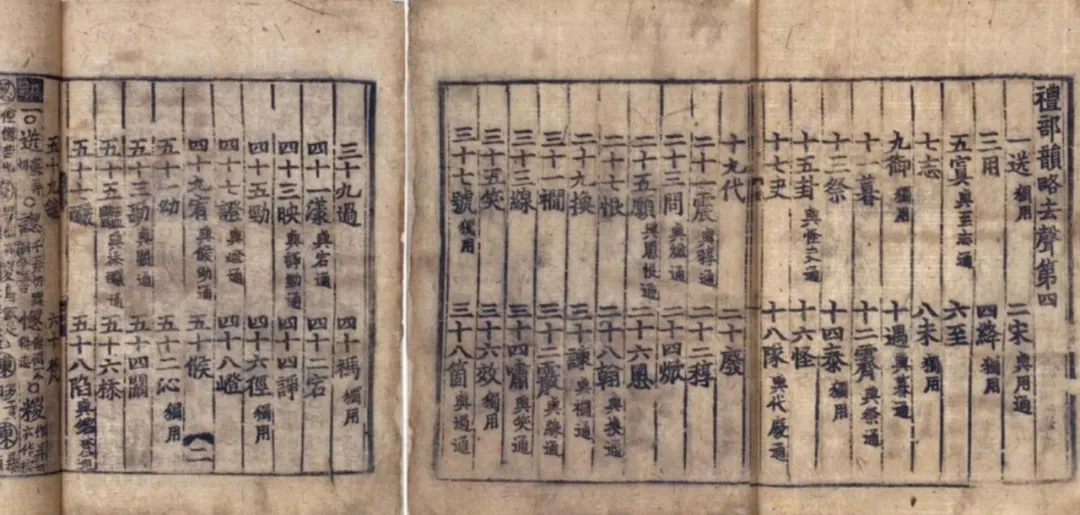 禮部韻略去聲第四
一送 獨用 二宋 與用通
三用 四絳 獨用
五寘 與至志通 六至
七志 八未 獨用
九御 獨用 十遇 與暮通
十一暮 十二霽 與祭通
十三祭 十四泰 獨用
十五卦 與怪夬通 十六怪
十七夬 十八隊 與代廢通
十九代 二十廢
二十一震 與稕通 二十二稕
二十三問 與焮通 二十四焮
二十五願 與慁恨通 二十六慁
二十七恨 二十八翰 與換通
二十九換 三十諫 與襇通
三十一襇 三十二霰 與線通
三十三線 三十四嘯 與笑通
三十五笑 三十六效 獨用
三十七號 獨用 三十八箇 與過通
三十九過 四十禡 獨用
四十一漾 與宕通 四十二宕
四十三映 與諍勁通 四十四諍
四十五勁 四十六徑 獨用
四十七證 與嶝通 四十八嶝
四十九宥 與候幼通 五十候
二
五十一幼 五十二沁 獨用
五十三勘 與闞通 五十四闞
五十五豔 與㮇釅通 五十六㮇
五十七釅 五十八陷 與鑑梵通
五十九鑑 六十
一 送